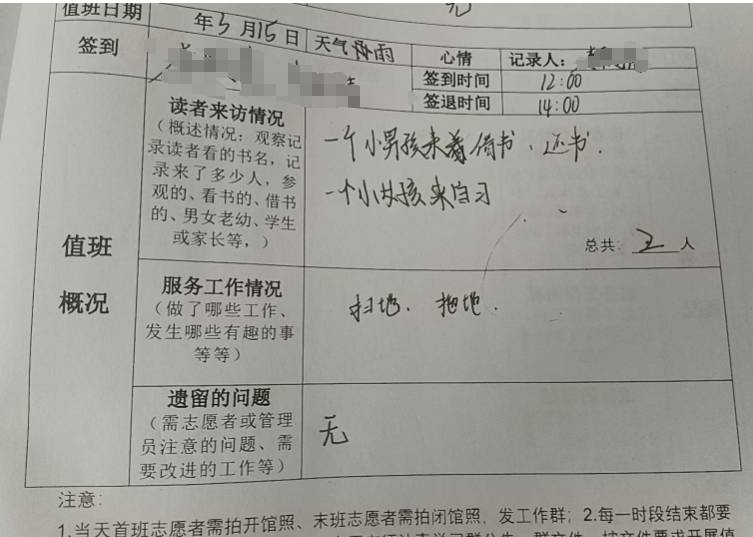 无
值班日期 年3月15日 天气 阴雨 心情 记录人:
签到 签到时间 12:00
签退时间 14:00
值班
概况
读者来访情况
(概述情况:观察记
录读者看的书名,记
录来了多少人,参
观的、看书的、借书
的、男女老幼、学生
或家长等,)
一个小男孩来看借书、还书.
一个小女孩来自习
总共:2人
服务工作情况
(做了哪些工作、
发生哪些有趣的事
等等)
扫地、拖地.
遗留的问题
(需志愿者或管理
员注意的问题、需
要改进的工作等)
无
注意:
1.当天首班志愿者需拍开馆照、末班志愿者需拍闭馆照,发工作群;2.每一时段结束都要